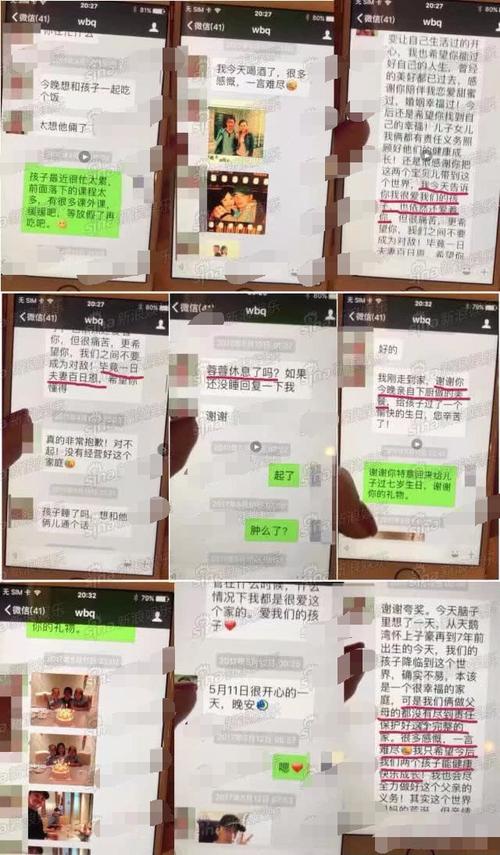 20:27
81%
微信(41)
wbq
今晚想和孩子一起吃
个饭
太想他俩了
孩子最近很忙太累,
前面落下的课程太
多,有很多课外课,
缓缓吧,等放假了再
吃吧。
20:27
80%
微信(41)
wbq
我今天喝酒了,很多
感慨,一言难尽
20:27
微信(41)
wbq
变让自己生活过的开
心,我也希望你能过
好自己的人生,曾经
的美好都已过去,感
谢你陪伴我恋爱甜蜜
过,婚姻幸福过!今
后还是希望你找到自
己的幸福!儿子女儿
俩都有责任义务照
顾好他们的健康成
长!还是感谢你把
这两个宝贝儿带到
这个世界,我今天告诉
你我很爱我们的孩
子,也依然还爱着
你,但很痛苦,更希
望你,我们之间不要
成为对敌!毕竟一日
夫妻百日恩,希望你
无 SIM 卡
20:27
80%
微信(41)
wbq
你,但很痛苦,更希
望你,我们之间不要
成为对敌!毕竟一日
夫妻百日恩,希望你
懂得
真的非常抱歉!对不
起!没有经营好这个
家庭
孩子睡了吗,想和他
俩儿通个话
无 SIM 卡
20:27
80%
微信(41)
wbq
蓉蓉休息了吗?如果
还没睡回复一下我
谢谢
起了
肿么了?
无 SIM 卡
20:32
80%
微信(41)
wbq
好的
我刚走到家,谢谢你
今晚亲自下厨做的美
餐,给孩子过了一个
愉快的生日,您辛苦
了!
谢谢你特意回来给儿
子过七岁生日,谢谢
你的礼物。
无 SIM 卡
20:32
79%
微信(41)
wbq
你的礼物。
管在什么时候,什么
情况下我都是很爱这
个家的。爱我们的孩
子
5月11日很开心的一
天,晚安
嗯
谢谢夸奖。今天脑子
里想了一天,从天鹅
湾怀上子豪再到7年前
出生的今天,我们的
孩子降临到这个世
界,确实不易,本该
是一个很幸福的家
庭,可是我们俩做父
母的都没有尽到责任
保护好这个完整的
家。很多感慨,一言
难尽我只希望今后
我们两个孩子能健康
快乐成长!我也会尽
全力做好这个父亲的
义务!其实这个世界